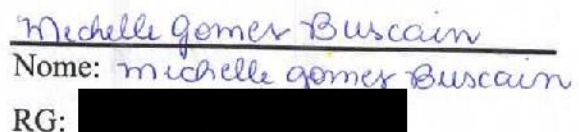 Michelle Gomes Buscain
Nome: michelle gomes Buscain
RG: